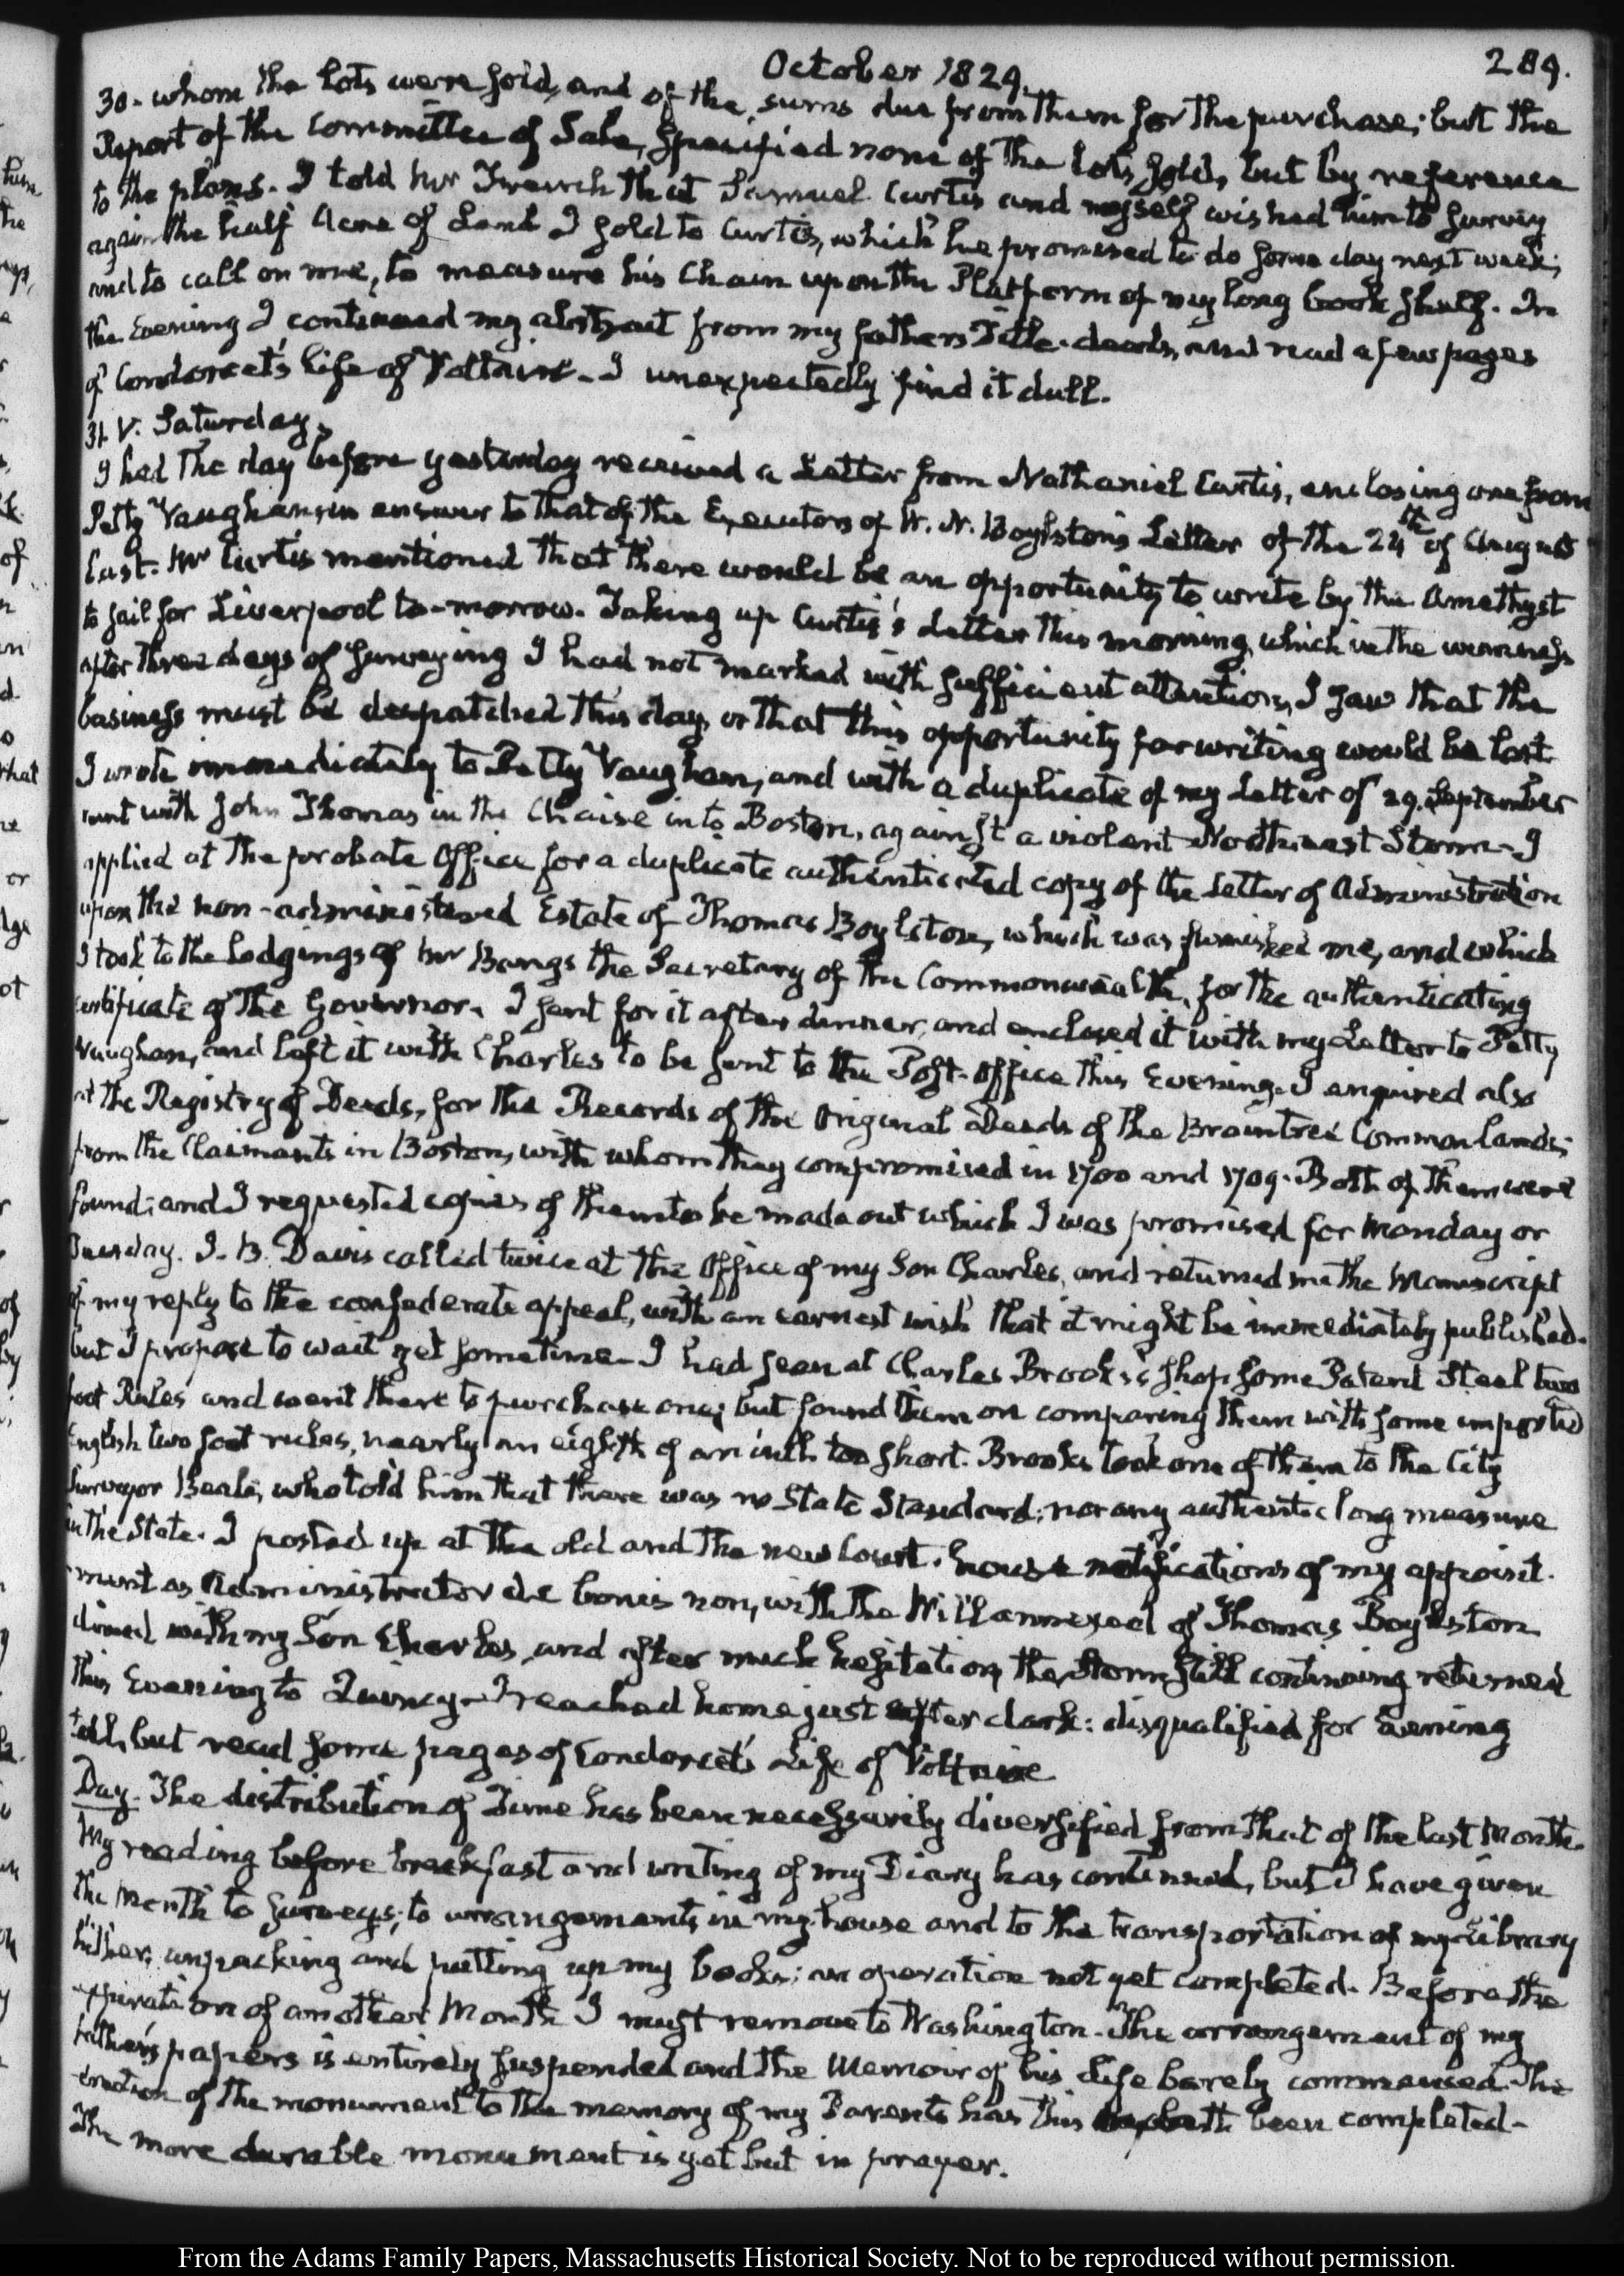 October 1829.
289.
30. whom the lots were sold, and of the sums due from them for the purchase; but the
Report of the Committee of Sale, specified none of the lots sold, but by reference
to the plans. I told Mr French that Samuel Curtis and myself wished him to survey
again the half Acre of Land I sold to Curtis, which he promised to do some day next week;
and to call on me, to measure his Chain upon the Platform of my long book shelf. In
the Evening I continued my abstract from my father's Title-deeds, and read a few pages
of Condorcet's life of Voltaire. I unexpectedly find it dull.
31. V. Saturday.
I had the day before yesterday received a Letter from Nathaniel Curtis, enclosing one from
Petty Vaughan, in answer to that of the Executors of W. N. Boylston's Letter of the 24th of August
last. Mr Curtis mentioned that there would be an opportunity to write by the Amethyst
to sail for Liverpool to-morrow. Taking up Curtis's Letter this morning, which in the weariness
after three days of surveying I had not marked with sufficient attention, I saw that the
business must be despatched this day, or that this opportunity for writing would be lost.
I wrote immediately to Petty Vaughan, and with a duplicate of my Letter of 29. September
went with John Thomas in the Chaise into Boston, against a violent Northeast Storm. I
applied at the probate Office for a duplicate authenticated copy of the Letter of Administration
upon the non-administered Estate of Thomas Boylston, which was furnished me, and which
I took to the Lodgings of Mr Bangs the Secretary of the Commonwealth, for the authenticating
certificate of the Governor. I sent for it after dinner, and enclosed it with my Letter to Petty
Vaughan, and left it with Charles to be sent to the Post-Office this Evening. I enquired also
at the Registry of Deeds, for the Records of the Original Deeds of the Braintree Common lands;
from the Claimants in Boston, with whom they compromised in 1700 and 1709. Both of them were
found; and I requested copies of them to be made out which I was promised for Monday or
Tuesday. I. B. Davis called twice at the Office of my Son Charles, and returned me the Manuscript
of my reply to the confederate appeal, with an earnest wish that it might be immediately published.
but I propose to wait yet sometime. I had seen at Charles Brooks's shop some Patent Steel two
foot Rules and went there to purchase one; but found them on comparing them with some imported
English two foot rules, nearly an eighth of an inch too short. Brooks took one of them to the City
Surveyor Beals, who told him that there was no State Standard; nor any authentic long measure
in the State. I posted up at the old and the new Court-house notifications of my appoint-
ment as Administrator de bonis non, with the Will annexed of Thomas Boylston
dined with my Son Charles, and after much hesitation, the Storm still continuing returned
this Evening to Quincy. I reached home just after dark: disqualified for Evening
toil, but read some pages of Condorcet's Life of Voltaire
Day. The distribution of Time has been necessarily diversified from that of the last Month.
My reading before breakfast and writing of my Diary has continued, but I have given
the Month to surveys; to arrangements in my house and to the transportation of my Library
hither; unpacking and putting up my books; an operation not yet completed. Before the
expiration of another Month I must remove to Washington. The arrangement of my
father's papers is entirely suspended and the Memoir of his Life barely commenced. The
erection of the monument to the memory of my Parents has this been completed-
The more durable monument is yet but in prayer.
From the Adams Family Papers, Massachusetts Historical Society. Not to be reproduced without permission.